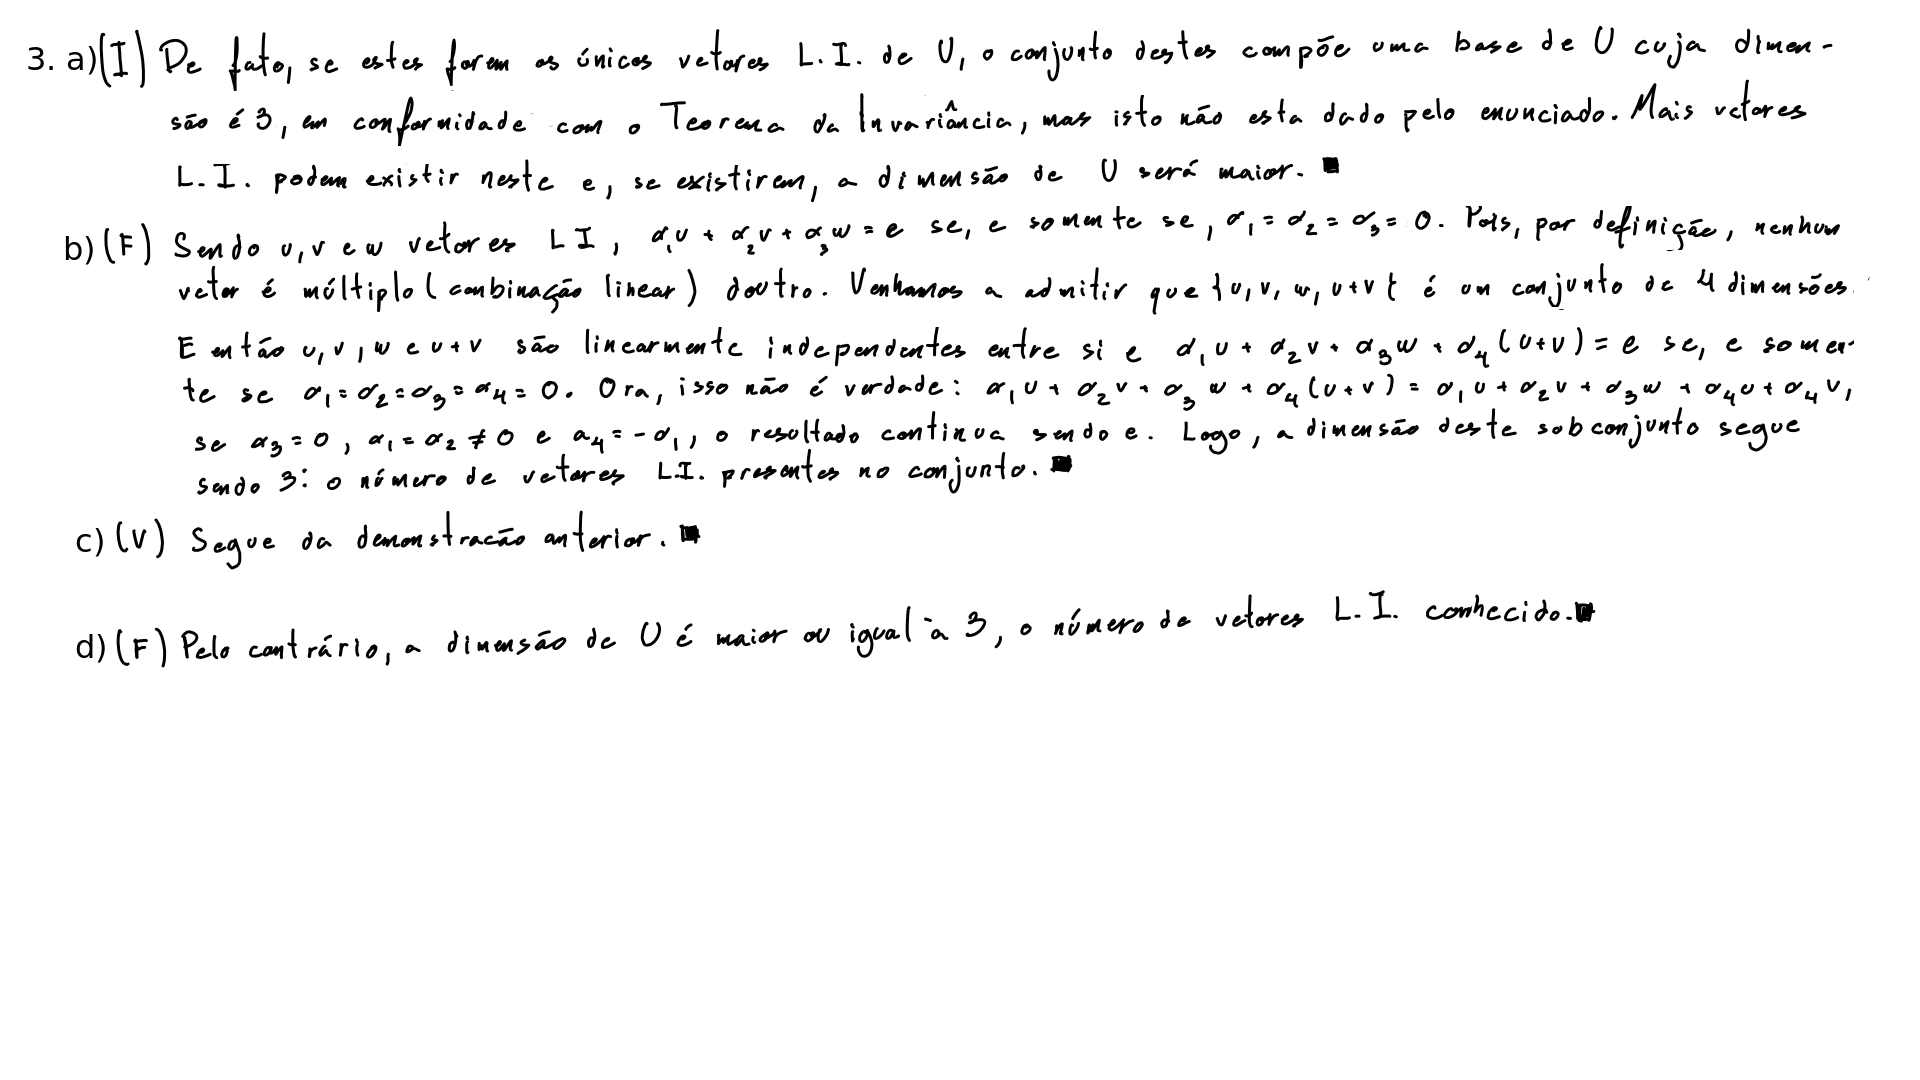 3. a)(I) De fato, se estes forem os únicos vetores L.I. de U, o conjunto destes compõe uma base de U cuja dimen-
são é 3, em conformidade com o Teorema da Invariância, mas isto não esta dado pelo enunciado. Mais vetores
L.I. podem existir neste e, se existirem, a dimensão de U será maior. ■
b) (F) Sendo u, v e w vetores LI, α₁u + α₂v + α₃w = e se, e somente se, α₁ = α₂ = α₃ = 0. Pois, por definição, nenhum
vetor é múltiplo (combinação linear) doutro. Venhamos a admitir que {u, v, w, u+v} é um conjunto de 4 dimensões.
Então u, v, w e u+v são linearmente independentes entre si e α₁u + α₂v + α₃w + α₄(u+v) = e se, e somen-
te se α₁ = α₂ = α₃ = α₄ = 0. Ora, isso não é verdade: α₁u + α₂v + α₃w + α₄(u+v) = α₁u + α₂v + α₃w + α₄u + α₄v,
se α₃ = 0, α₁ = α₂ ≠ 0 e α₄ = -α₁, o resultado continua sendo e. Logo, a dimensão deste subconjunto segue
sendo 3: o número de vetores L.I. presentes no conjunto. ■
c) (V) Segue da demonstracão anterior. ■
d) (F) Pelo contrário, a dimensão de U é maior ou igual à 3, o número de vetores L.I. conhecido. ■